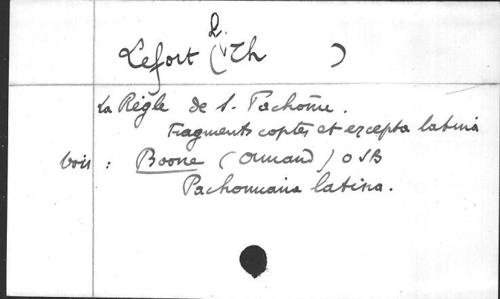 Lefort (L. Th )
La Règle de S. Pachôme.
Fragments coptes et excepta latina
Voir : Boone (Amand) OSB
Pachomiana latina.